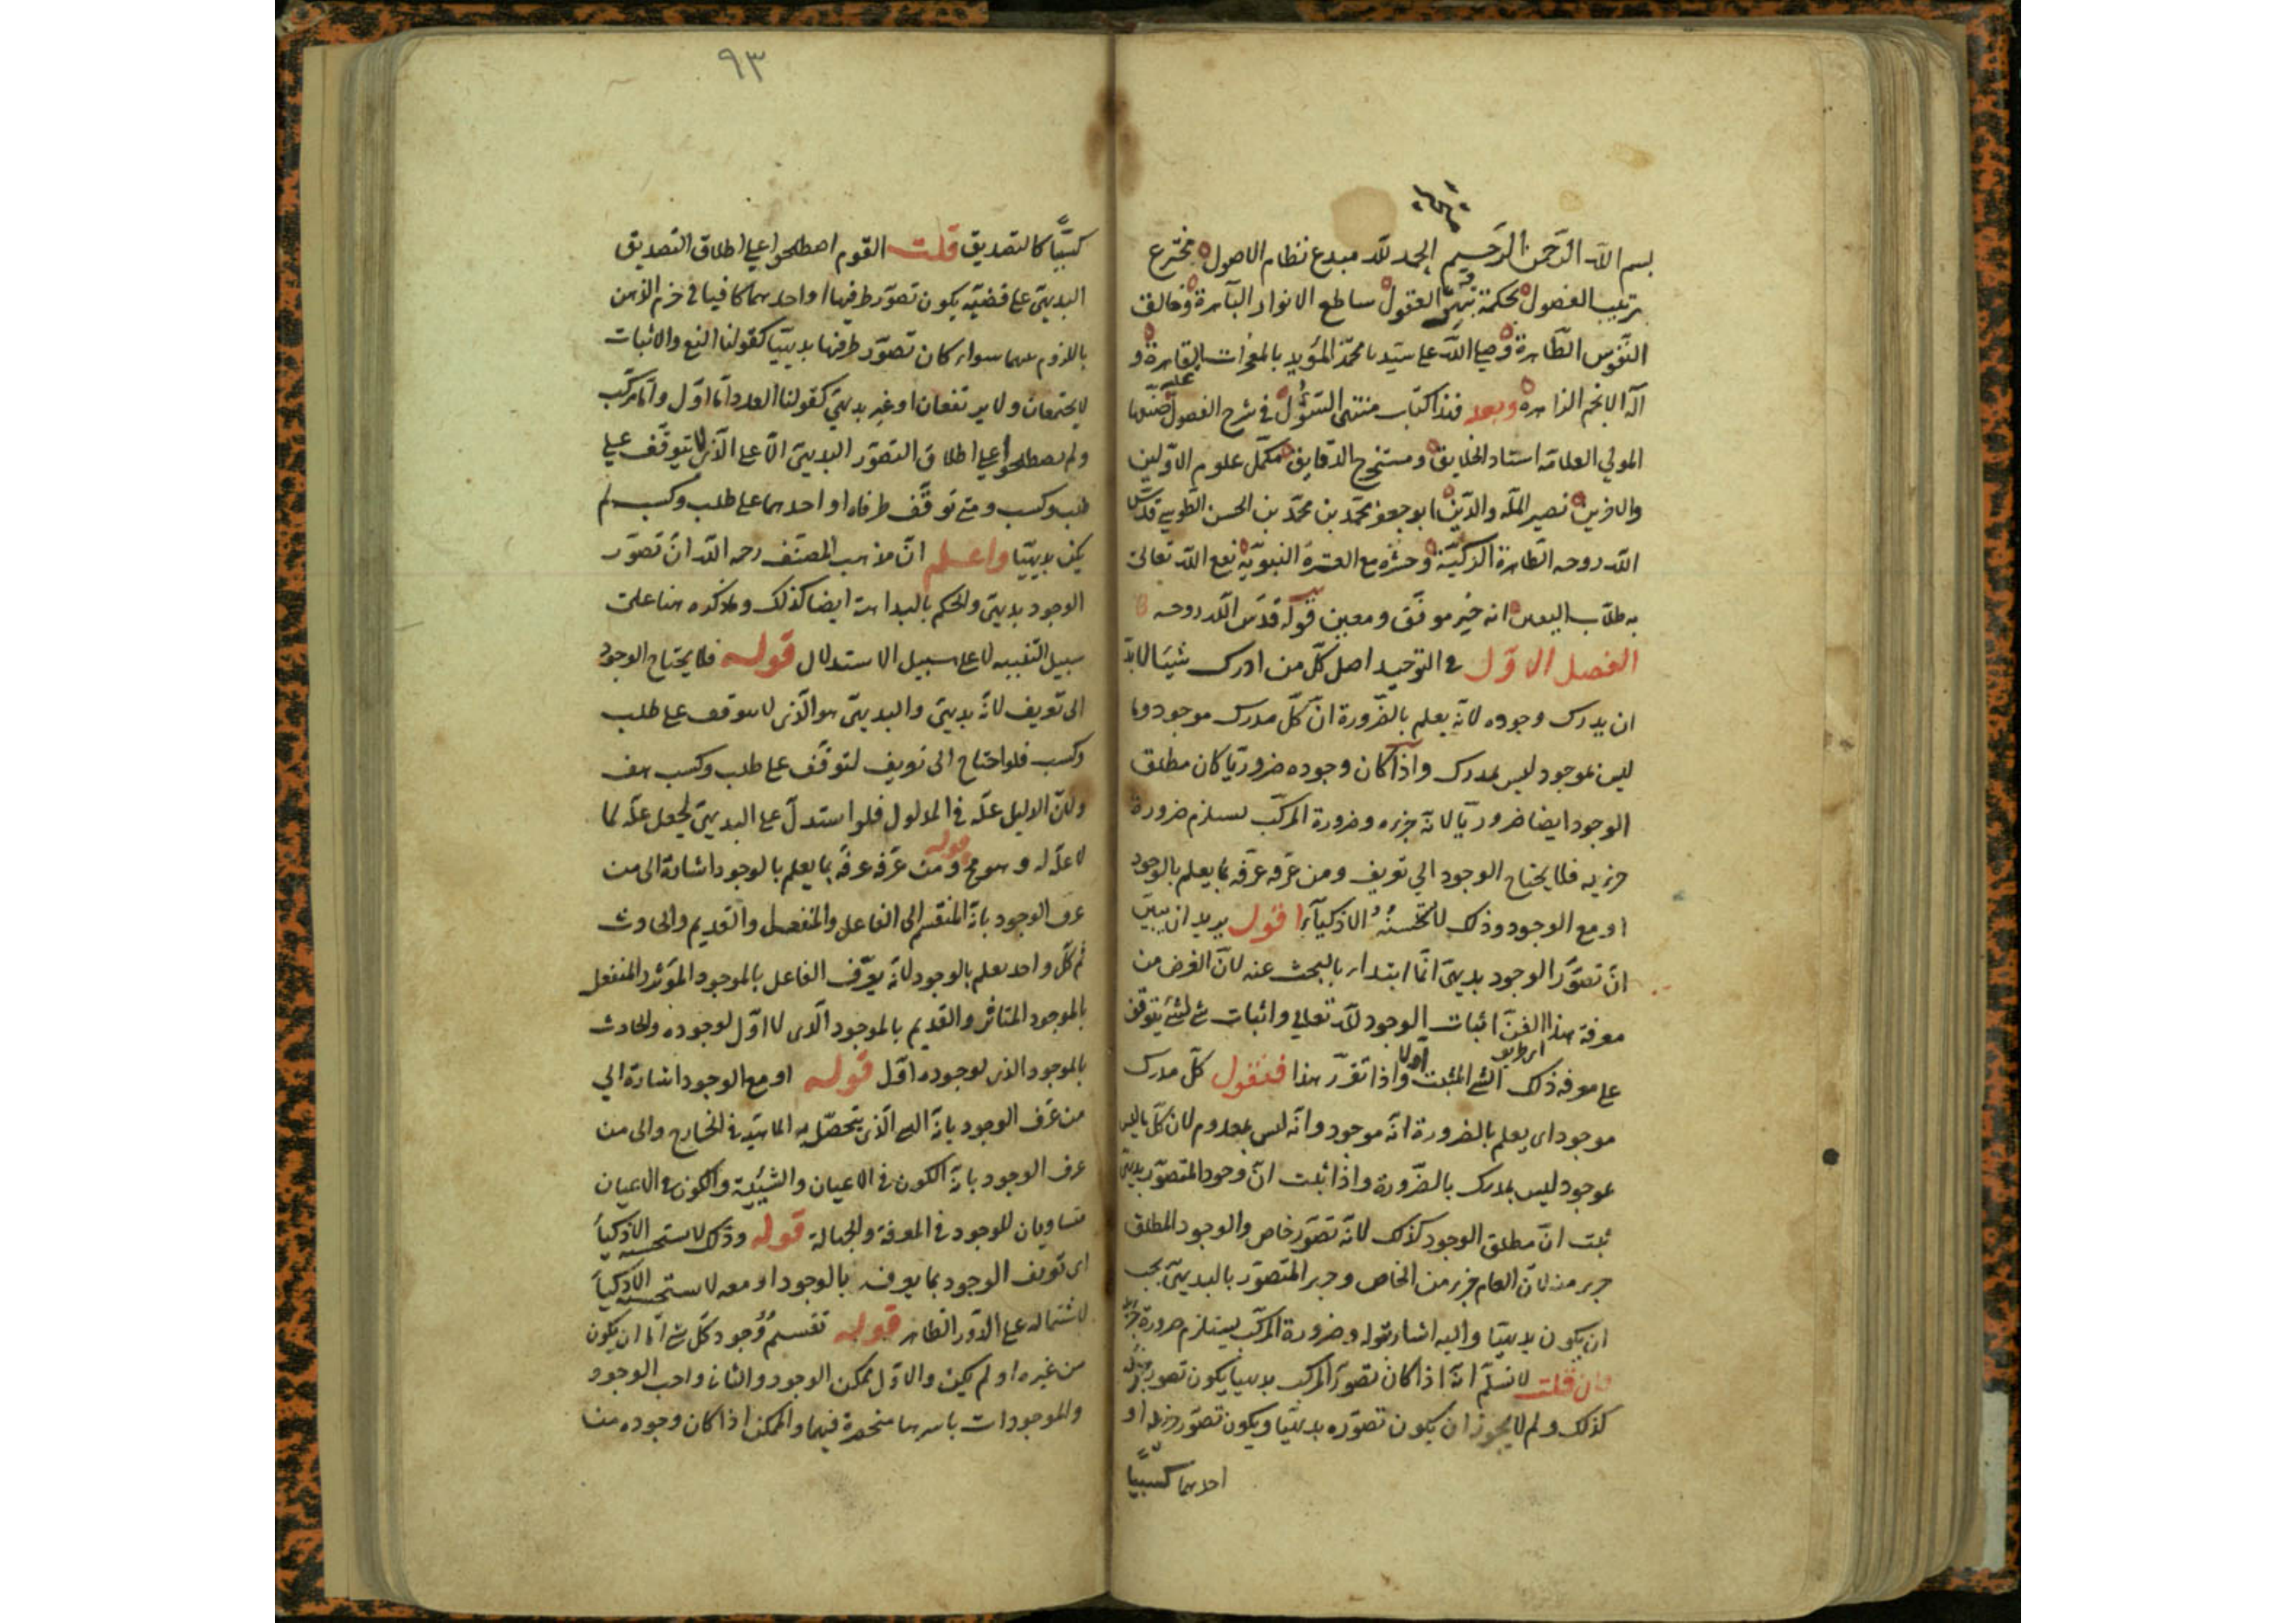 بسم الله الرحمن الرحيم الحمد لله مبدع نظام الاصول مخترع
ترتيب الفصول بحكمة العقول ساطع الانوار الباهرة وخالق
النفوس الطاهرة وصلى الله على سيدنا محمد المؤيد بالمعجزات القاهرة و
آله الانجم الزاهرة وبعد فهذا كتاب منتهى السؤل في شرح الفصول صنفها
المولى العلامه استاد الخلايق ومستخرج الدقايق مكمل علوم الاولين
والاخرين نصير الملة والدين ابو جعفر محمد بن محمد بن الحسن الطوسي قدس
الله روحه الطاهرة الزكية وحشره مع العترة النبوية نفع الله تعالى
به طلاب اليقين انه خير موفق ومعين قوله قدس الله روحه
الفصل الاول في التوحيد اصل كل من ادرك شيئا لابد
ان يدرك وجوده لانه يعلم بالضرورة ان كل مدرك موجود وما
ليس بموجود ليس بمدرك واذا كان وجوده ضروريا كان مطلق
الوجود ايضا ضروريا لانه جزءه وضرورة المركب يستلزم ضرورة
جزئيه فلا يحتاج الوجود الى تعريف ومن عرفه عرفه بما يعلم بالوجود
او مع الوجود وذلك لا تحسنه الاذكياء اقول يريد ان يبين
ان تصور الوجود بديهى انما ابتداء بالبحث عنه لان الغرض من
معرفة هذا الفن اثبات الوجود لله تعالى واثبات شئ لشئ يتوقف
على معرفة ذلك الشئ المثبت اولا واذا تقرر هذا فنقول كل مدرك
موجود اى يعلم بالضرورة انه موجود وانه ليس بمعدوم لان كل ما ليس
بموجود ليس بمدرك بالضرورة واذا ثبت ان وجود المتصور بديهى
ثبت ان مطلق الوجود كذلك لانه تصور خاص والوجود المطلق
جزء منه لان العام جزء من الخاص وجزء المتصور بالبديهى يجب
ان يكون بديهيا واليه اشار بقوله وضرورة المركب يستلزم ضرورة جزئه
فان قلت لا نسلم انه اذا كان تصور المركب بديهيا يكون تصور جزئه
كذلك ولم لا يجوز ان يكون تصوره بديهيا ويكون تصور جزئه او
احدهما كسبيا
٩٣
كسبيا كالتصديق قلت القوم اصطلحوا على اطلاق التصديق
البديهى على قضيه يكون تصور طرفيها او احدهما كافيا في جزم الذهن
باللزوم بينهما سواء كان تصور طرفيها بديهيا كقولنا النفي والاثبات
لا يجتمعان ولا يرتفعان او غير بديهى كقولنا العدد اما اول واما مركب
ولم يصطلحوا على اطلاق التصور البديهى الا على الذى لا يتوقف على
طلب وكسب ومتى توقف طرفاه او احدهما على طلب وكسب لم
يكن بديهيا واعلم ان مذهب المصنف رحمه الله ان تصور
الوجود بديهى والحكم بالبداهة ايضا كذلك وما ذكره هنا على
سبيل التنبيه لا على سبيل الاستدلال قوله فلا يحتاج الوجود
الى تعريف لانه بديهى والبديهى هو الذى لا يتوقف على طلب
وكسب فلو احتاج الى تعريف لتوقف على طلب وكسب هف
ولان الدليل علة في المدلول فلو استدل على البديهى لجعل علة لما
لا علة له وهو مح قوله ومن عرفه عرفه بما يعلم بالوجود اشارة الى من
عرف الوجود بانه المنقسم الى الفاعل والمنفعل والقديم والحادث
ثم كل واحد يعلم بالوجود لانه يعرف الفاعل بالموجود المؤثر والمنفعل
بالموجود المتاثر والقديم بالموجود الذى لا اول لوجوده والحادث
بالموجود الذى لوجوده اول قوله او مع الوجود اشارة الى
من عرف الوجود بانه الذى يتحصل به الماهية في الخارج والى من
عرف الوجود بانه الكون في الاعيان والشيئية والكون في الاعيان
متساويان للوجود في المعرفة والجهالة قوله وذلك لا يستحسنه الاذكياء
اى تعريف الوجود بما يعرف بالوجود او معه لا يستحسنه الاذكياء
لاشتماله على الدور الظاهر قوله تقسيم وجود كل شئ اما ان يكون
من غيره او لم يكن والاول ممكن الوجود والثانى واجب الوجود
والموجودات باسرها منحصرة فيهما والممكن اذا كان وجوده من